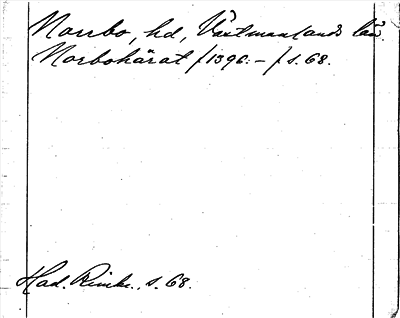 Norrbo, hd, Västmanlands län.
Norbohärat /1390.-/ s. 68.
Had. Rimkr., s. 68.